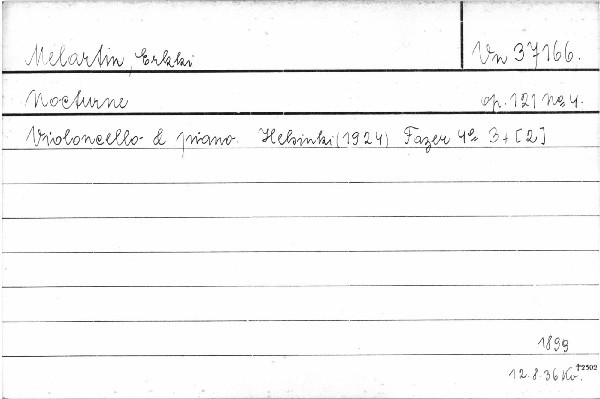 Melartin, Erkki Vn 37166.
Nocturne op. 121 No 4.
Violoncello & piano. Helsinki (1924) Fazer 4° 3 + [2]
1899
12.8.36 Ko. †2502